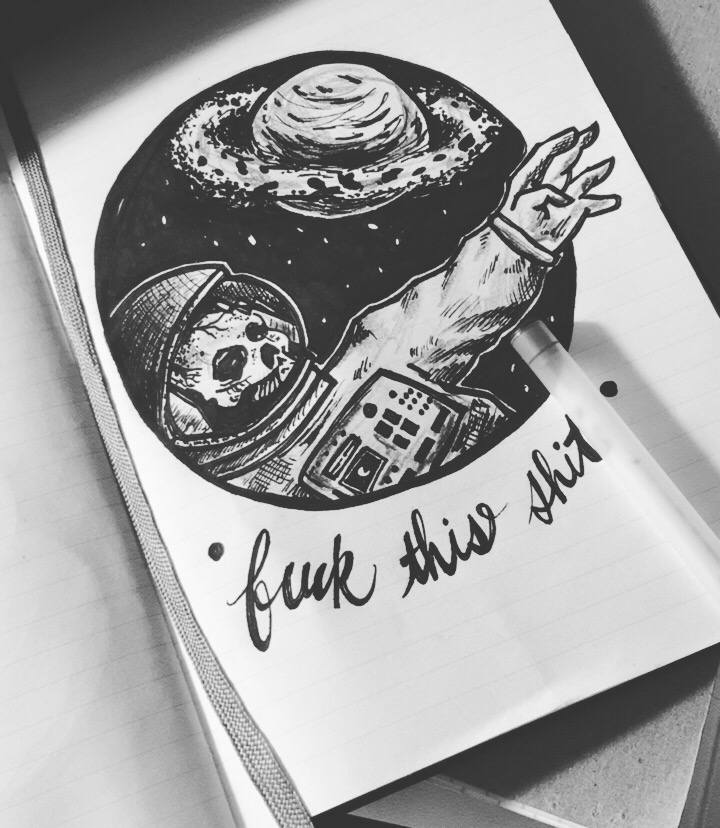 fuck this shit